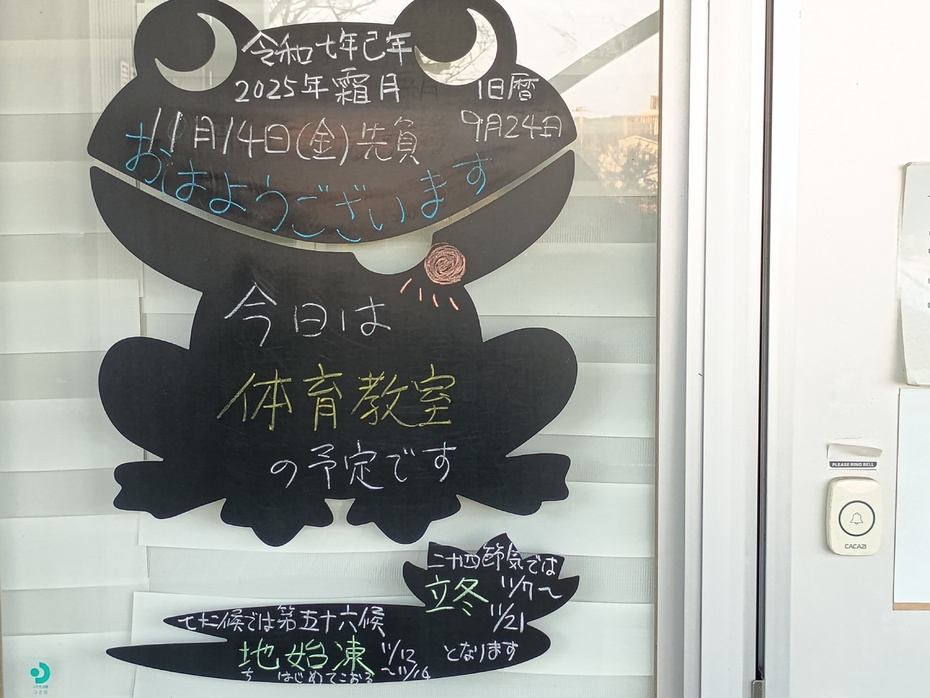 令和七年己年
2025年霜月
旧暦
9月24日
11月14日(金)先負
おはようございます
今日は
体育教室
の予定です
二十四節気では
立冬 11/7〜
11/21
七十二候では第五十六候
地始凍 11/12
ち はじめてこおる 〜11/16
となります
PLEASE RING BELL
CACAZI